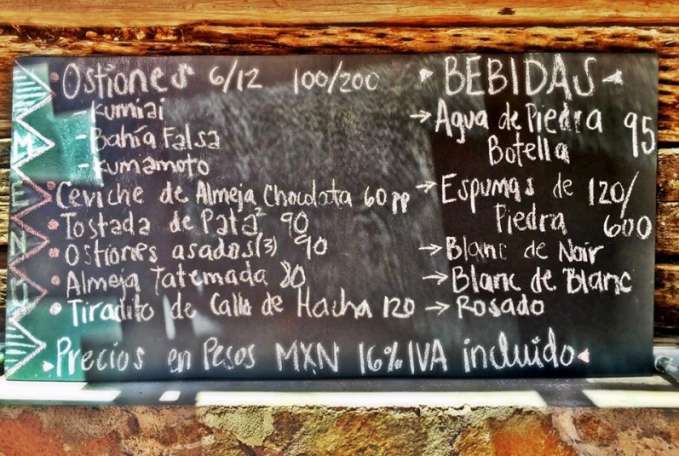 MENU
Ostiones 6/12 100/200
- Kumiai
- Bahía Falsa
- Kumamoto
Ceviche de Almeja Chocolata 60 pp
Tostada de Pata 90
Ostiones asados (3) 90
Almeja Tatemada 80
Tiradito de Callo de Hacha 120
BEBIDAS
→ Agua de Piedra 95
Botella
→ Espumas de 120/
Piedra 600
→ Blanc de Noir
→ Blanc de Blanc
→ Rosado
Precios en Pesos MXN 16% IVA incluido